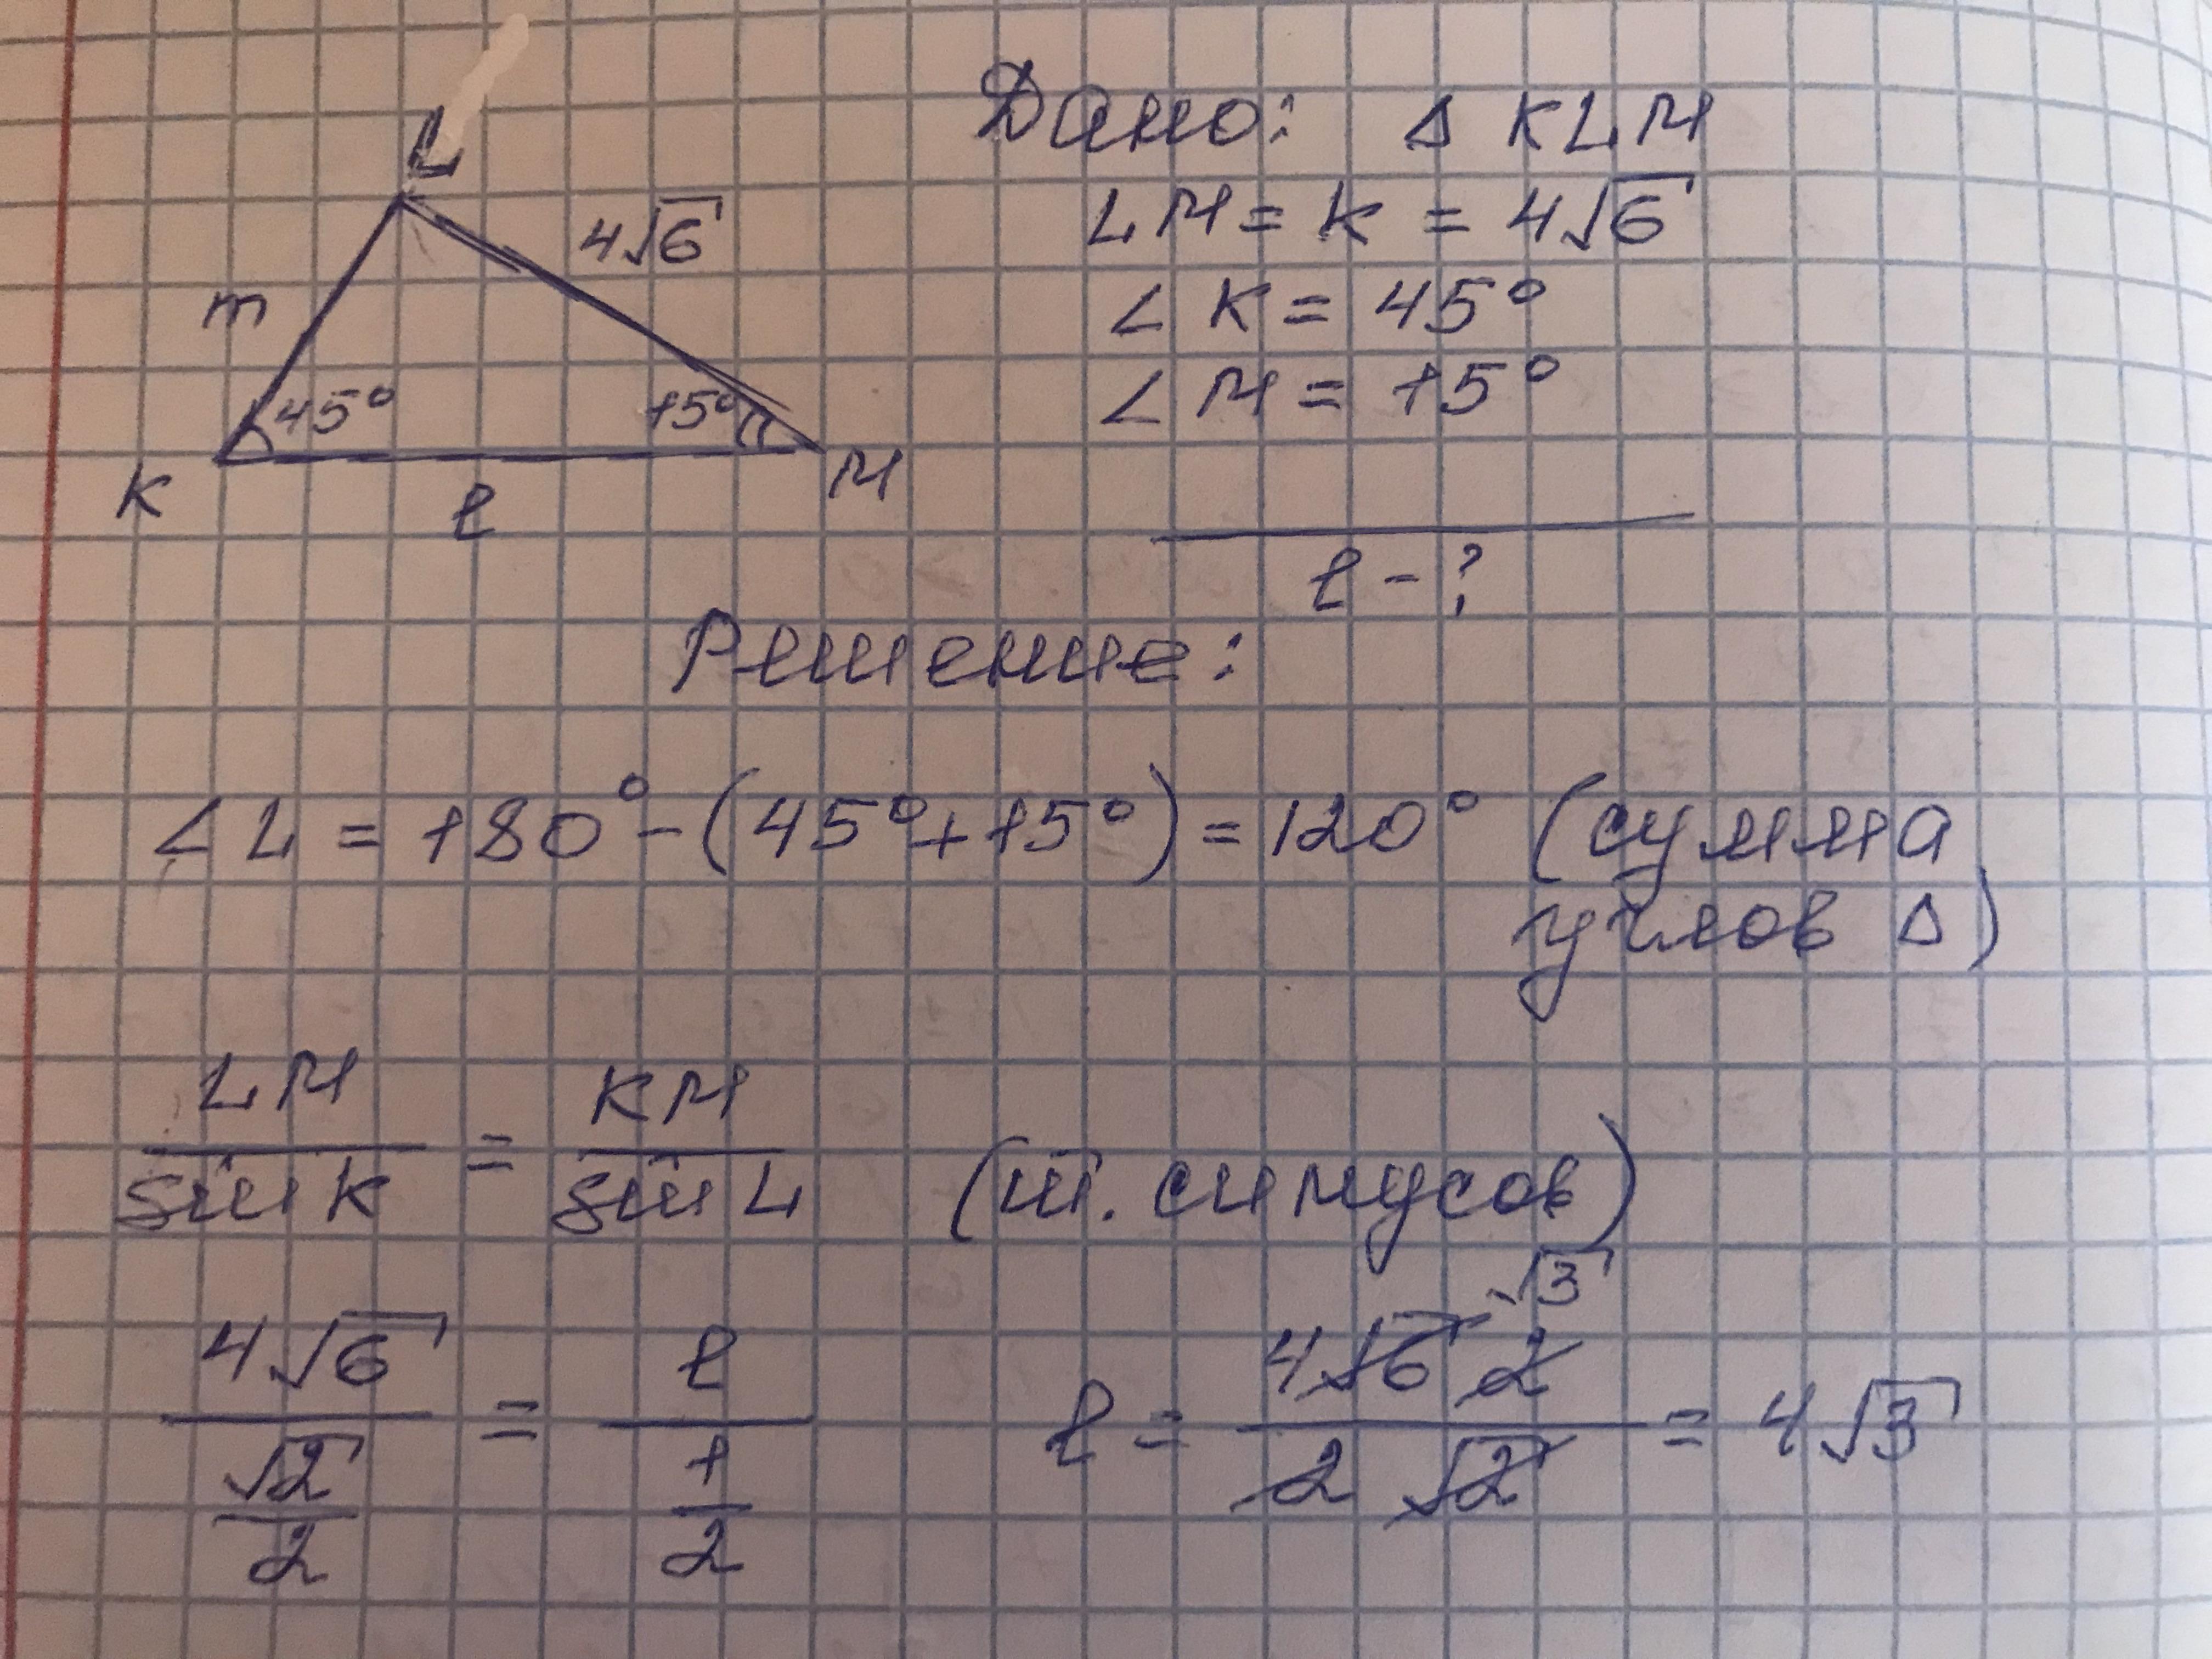 L
4√6
m
45°
15°
K
M
ℓ
Дано: Δ KLM
LM = k = 4√6
∠ K = 45°
∠ M = 15°
ℓ - ?
Решение:
∠ L = 180° - (45° + 15°) = 120° (сумма
углов Δ)
LM / sin K = KM / sin L (т. синусов)
4√6 / (√2 / 2) = ℓ / (1 / 2)
√3
ℓ = 4√6 2 / 2 √2 = 4√3